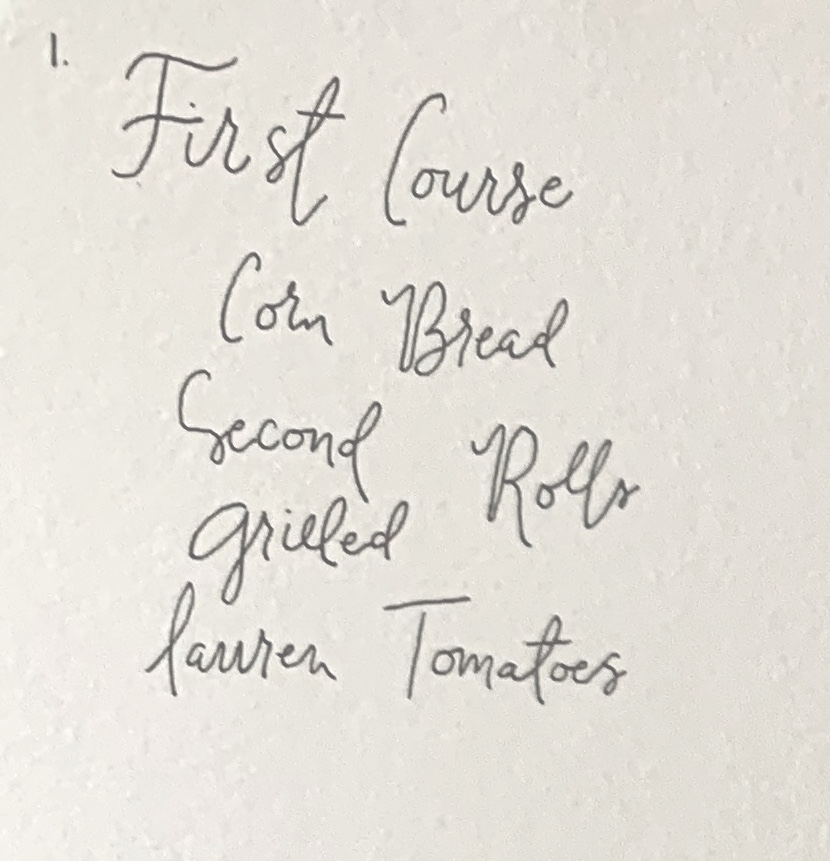 1.
First Course
Corn Bread
Second Rolls
Grilled
lauren Tomatoes